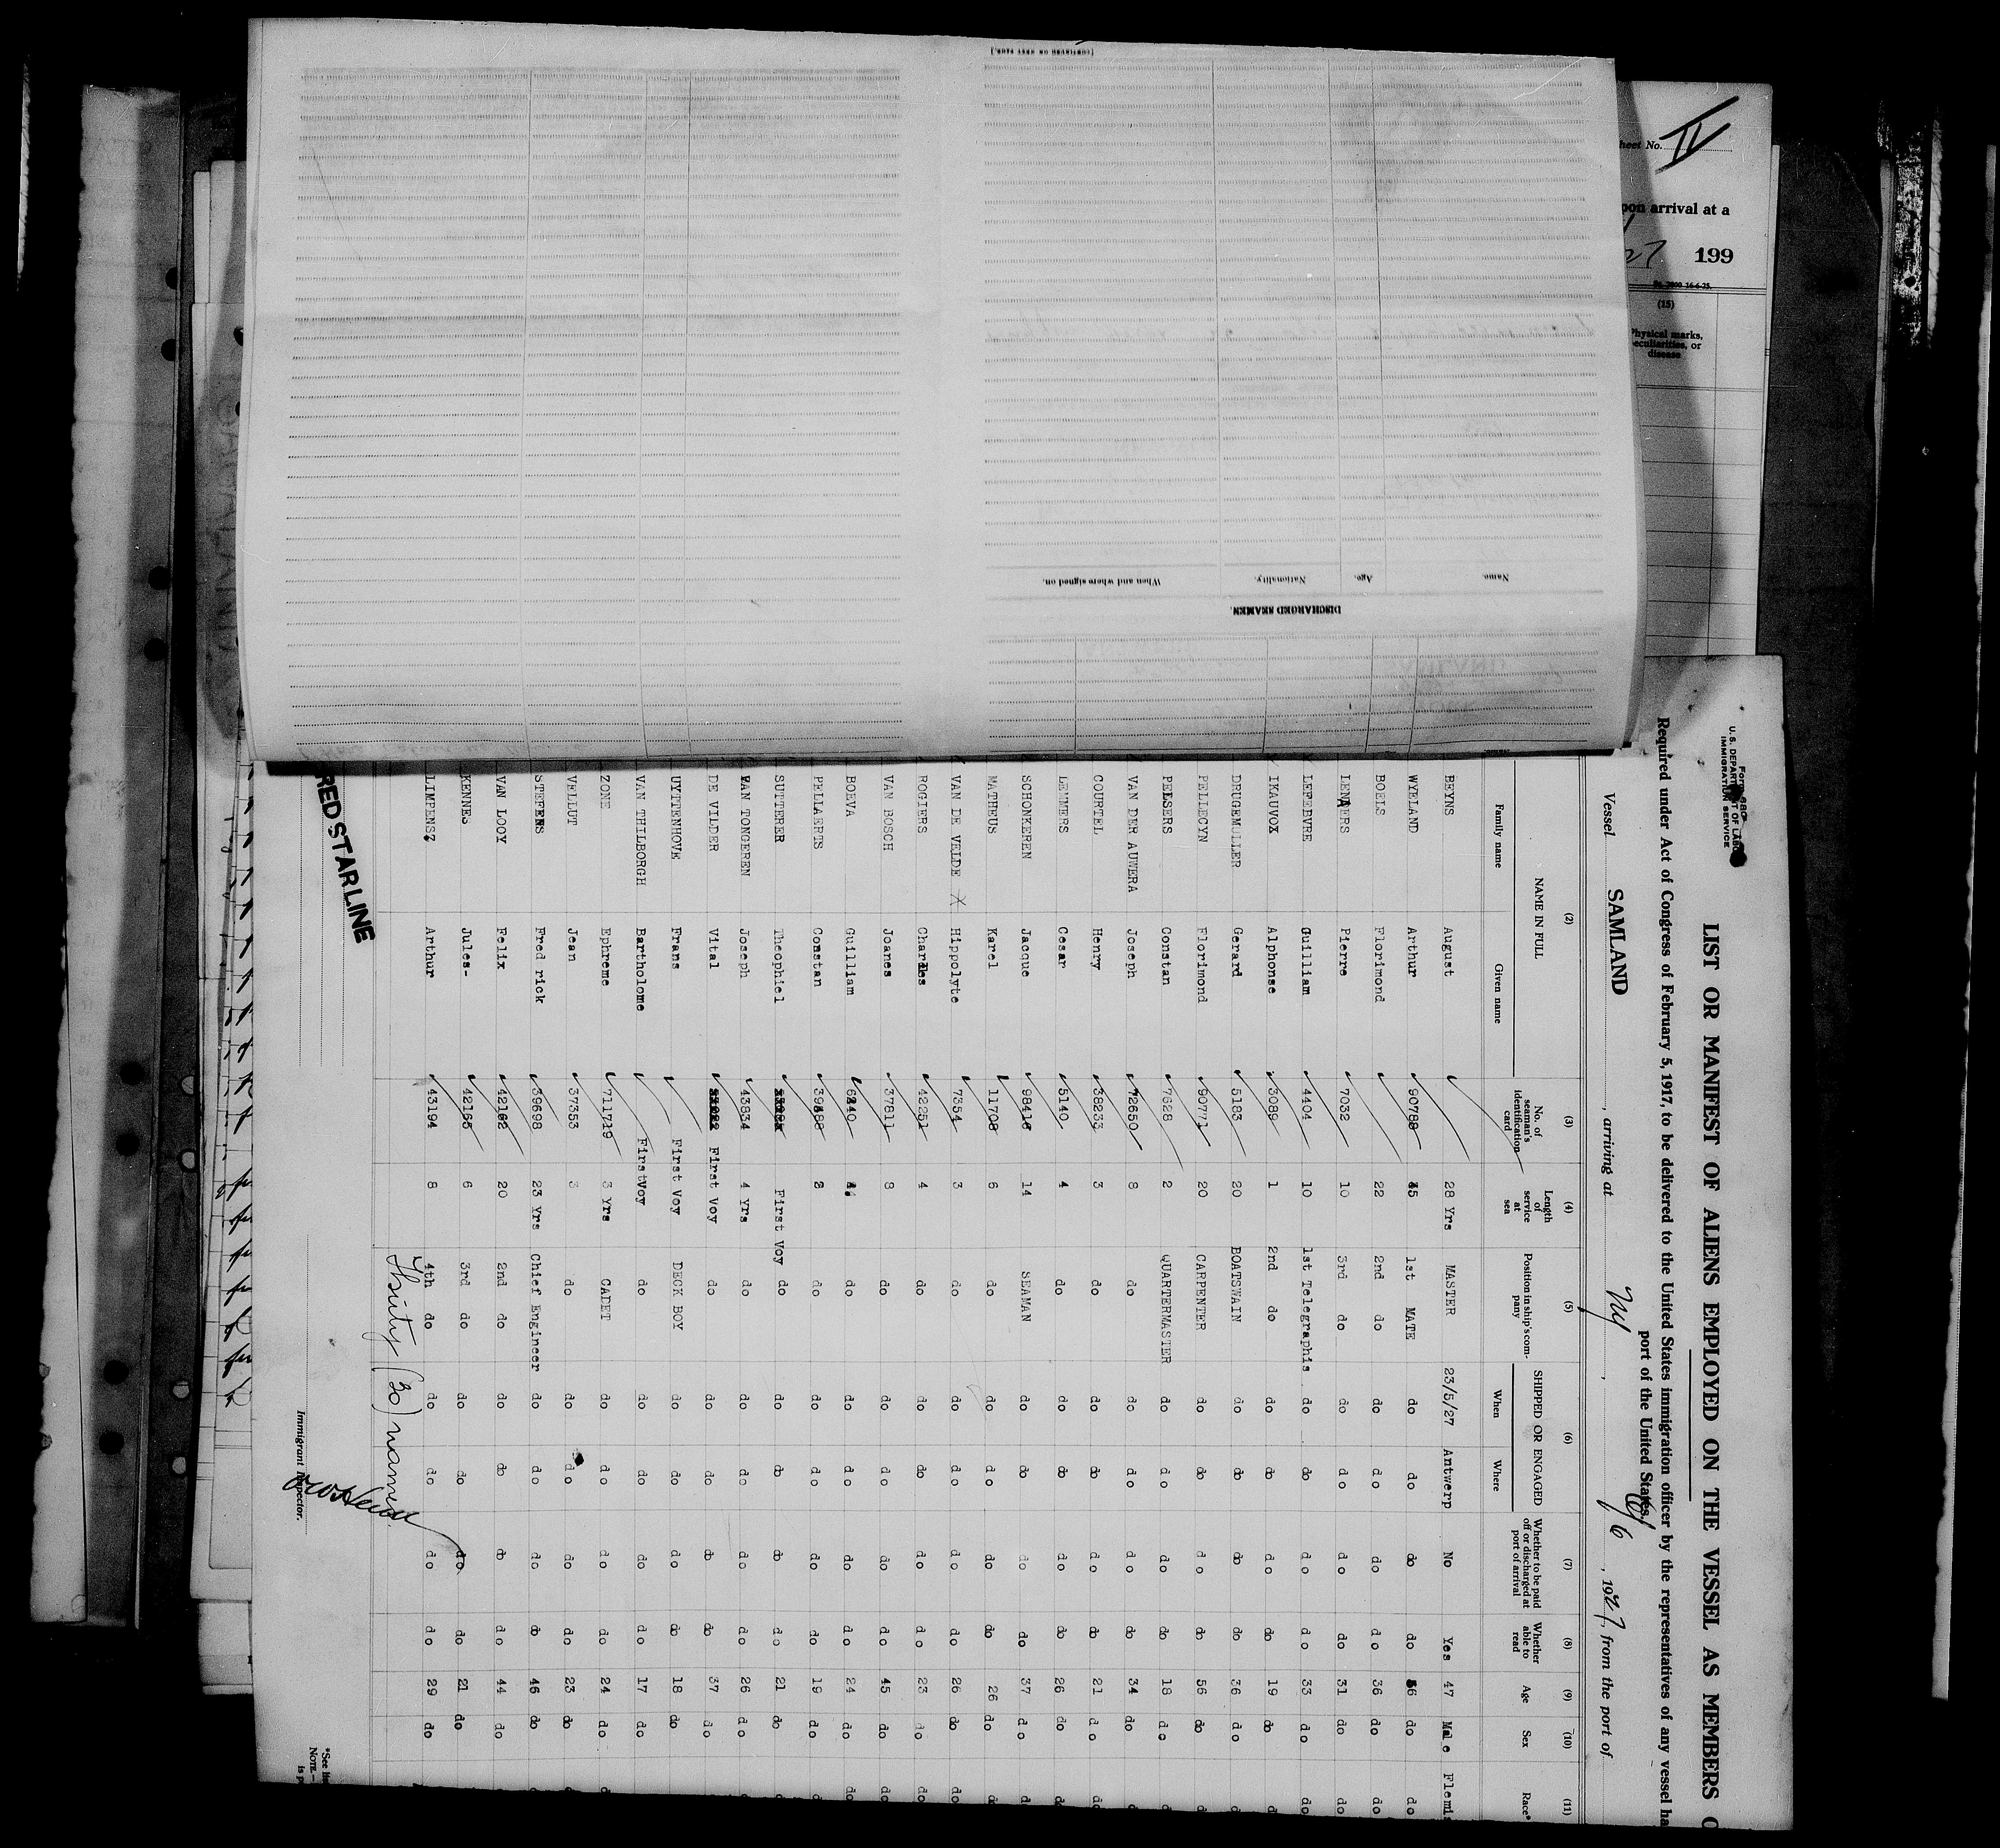 Sheet No. IV
upon arrival at a
27 199
(15)
Physical marks, peculiarities, or disease
[CONTINUED ON NEXT PAGE.]
DISCHARGED SEAMEN.
Name. Age. Nationality. When and where signed on.
U. S. DEPARTMENT OF LABOR
IMMIGRATION SERVICE
LIST OR MANIFEST OF ALIENS EMPLOYED ON THE VESSEL AS MEMBERS O
Required under Act of Congress of February 5, 1917, to be delivered to the United States immigration officer by the representatives of any vessel ha
port of the United States.
Vessel SAMLAND, arriving at NY, 6/6, 1927, from the port of
(2) (3) (4) (5) (6) (7) (8) (9) (10) (11)
NAME IN FULL
Family name Given name
No. of seaman's identification card
Length of service at sea
Position in ship's company
SHIPPED OR ENGAGED
When Where
Whether to be paid off or discharged at port of arrival
Whether able to read
Age Sex Race*
BEYNS August 28 Yrs MASTER 23/5/27 Antwerp No Yes 47 Male Flemis
WYELAND Arthur 90788 1st MATE do do do do do do
BOELS Florimond 22 2nd do do do do do 36 do do
LENAERS Pierre 7032 10 3rd do do do do do 31 do do
LEFEBVRE Guilliam 4404 10 1st Telegraphis do do do do 33 do do
IKAUVOX Alphonse 3089 1 2nd do do do do do 19 do d
DRUGEMULLER Gerard 5183 20 BOATSWAIN do do do do 36 do do
PELLEGYN Florimond 90771 20 CARPENTER do do do do 56 do d
PELSERS Constan 7628 2 QUARTERMASTER do do do do 18 do d
VAN DER AUWERA Joseph 72650 8 do do do do do 34 do do
COURTEL Henry 38233 3 do do do do do 21 do do
LEMMERS Cesar 5140 4 do do do do do 26 do do
SCHONKEREN Jacque 98416 14 SEAMAN do do do do 37 do d
MATHEUS Karel 11708 6 do do do do do 26 do do
VAN DE VELDE X Hippolyte 7354 3 do do do do do 26 do do
ROGIERS Charles 42251 4 do do do do do 23 do do
VAN BOSCH Joanes 37811 8 do do do do do 45 do do
BOEVA Guilliam do do do do do 24 do do
PELLAERTS Constan do do do do do 19 do d
SUTTERER Theophiel First Voy do do do do do 21 do d
VAN TONGEREN Joseph 43834 4 Yrs do do do do do 26 do
DE VILDER Vital First Voy do do do do do 37 do
UYTTENHOVE Frans First Voy DECK BOY do do do do 18 do
VAN THILBORGH Bartholome FirstVoy do do do do do 17 do
ZONE Ephreme 711719 3 Yrs CADET do do do do 24 do d
VELLUT Jean 37353 3 do do do do do 23 do
STEFENS Fred rick 39698 23 Yrs Chief Engineer do do do do 46 do d
VAN LOOY Felix 42162 20 2nd do do do do do 44 do
KENNES Jules- 42165 6 3rd do do do do do 21 do
LIMPENS? Arthur 43194 8 4th do do do do do 29 do
Thirty (30) names
RED STAR LINE
Immigrant Inspector.
*See li
NOTE.—
is p